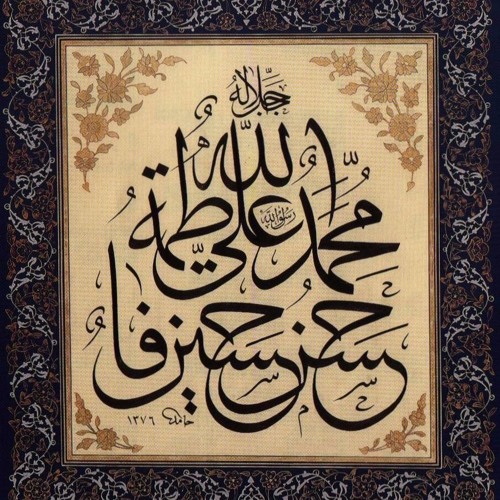 جل جلاله
الله
محمد رسول الله علي فاطمة
حسن حسين
حامد ١٣٧٦